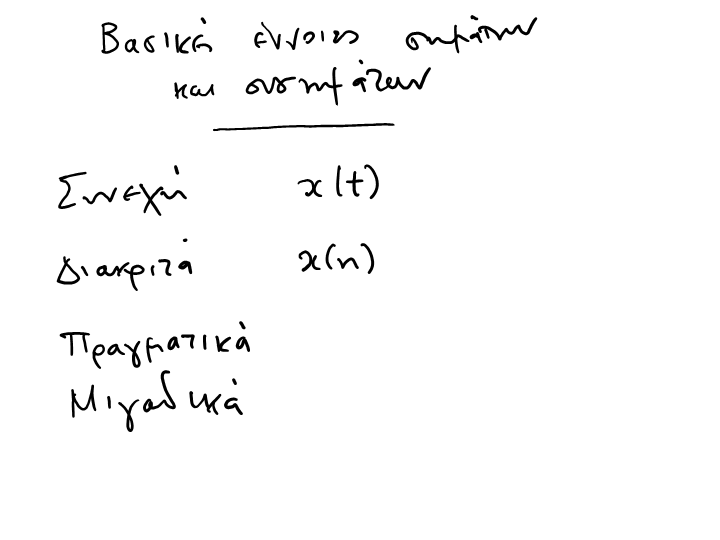 Βασικές έννοιες σημάτων
και συστημάτων
Συνεχή x(t)
Διακριτά x(n)
Πραγματικά
Μιγαδικά